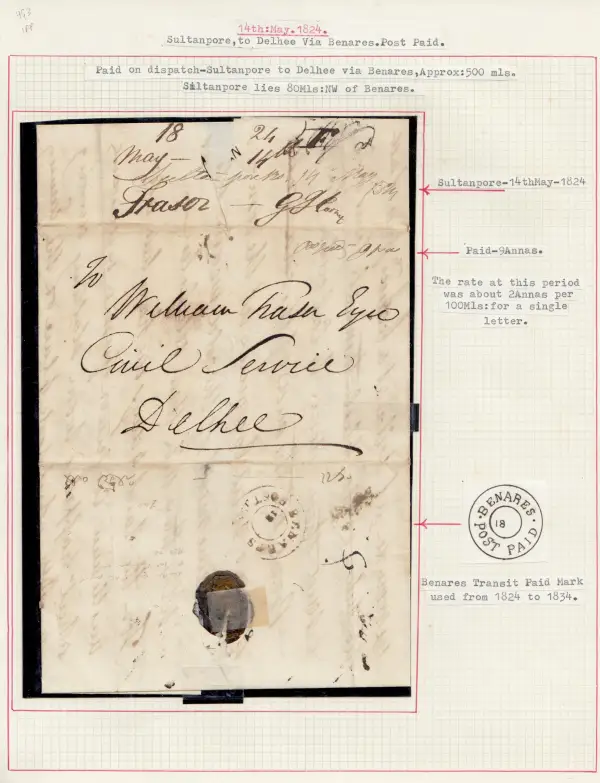 14th:May.1824.
Sultanpore,to Delhee Via Benares.Post Paid.
Paid on dispatch-Sultanpore to Delhee via Benares,Approx:500 mls.
Sultanpore lies 80Mls:NW of Benares.
18 24
May — 14th
14 May
Fraser —
Sultanpore-14thMay-1824
Paid-9Annas.
The rate at this period
was about 2Annas per
100Mls:for a single
letter.
To
William Fraser Esqre
Civil Service
Delhee
BENARES
POST
18
BENARES
18
POST PAID
Benares Transit Paid Mark
used from 1824 to 1834.